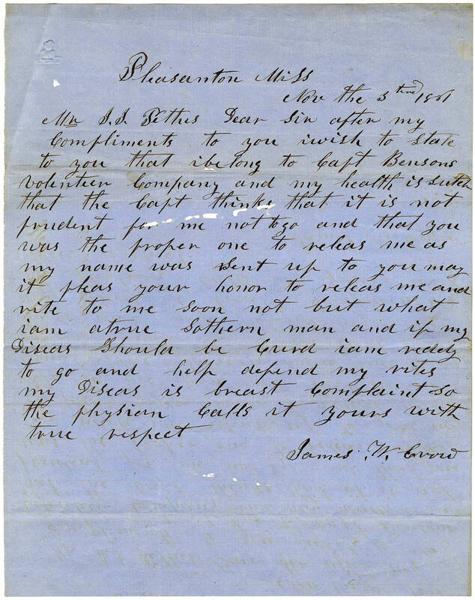 Pleasanton Miss
Nov the 3 1861
Mr J. J. Pettus Dear Sir after my
Compliments to you i wish to State
to you that i belong to Capt Bensons
volenteer Company and my health is sutch
that the Capt thinks that it is not
prudent for me not to go and that you
was the proper one to releas me as
my name was sent up to you may
it pleas your honor to releas me and
rite to me soon not but what
iam atrue Sothern man and if my
Diseas Should be Curd iam reddy
to go and help depend my rites
my Diseas is breast Complaint So
the physian Calls it yours with
true respect
James W. Crow